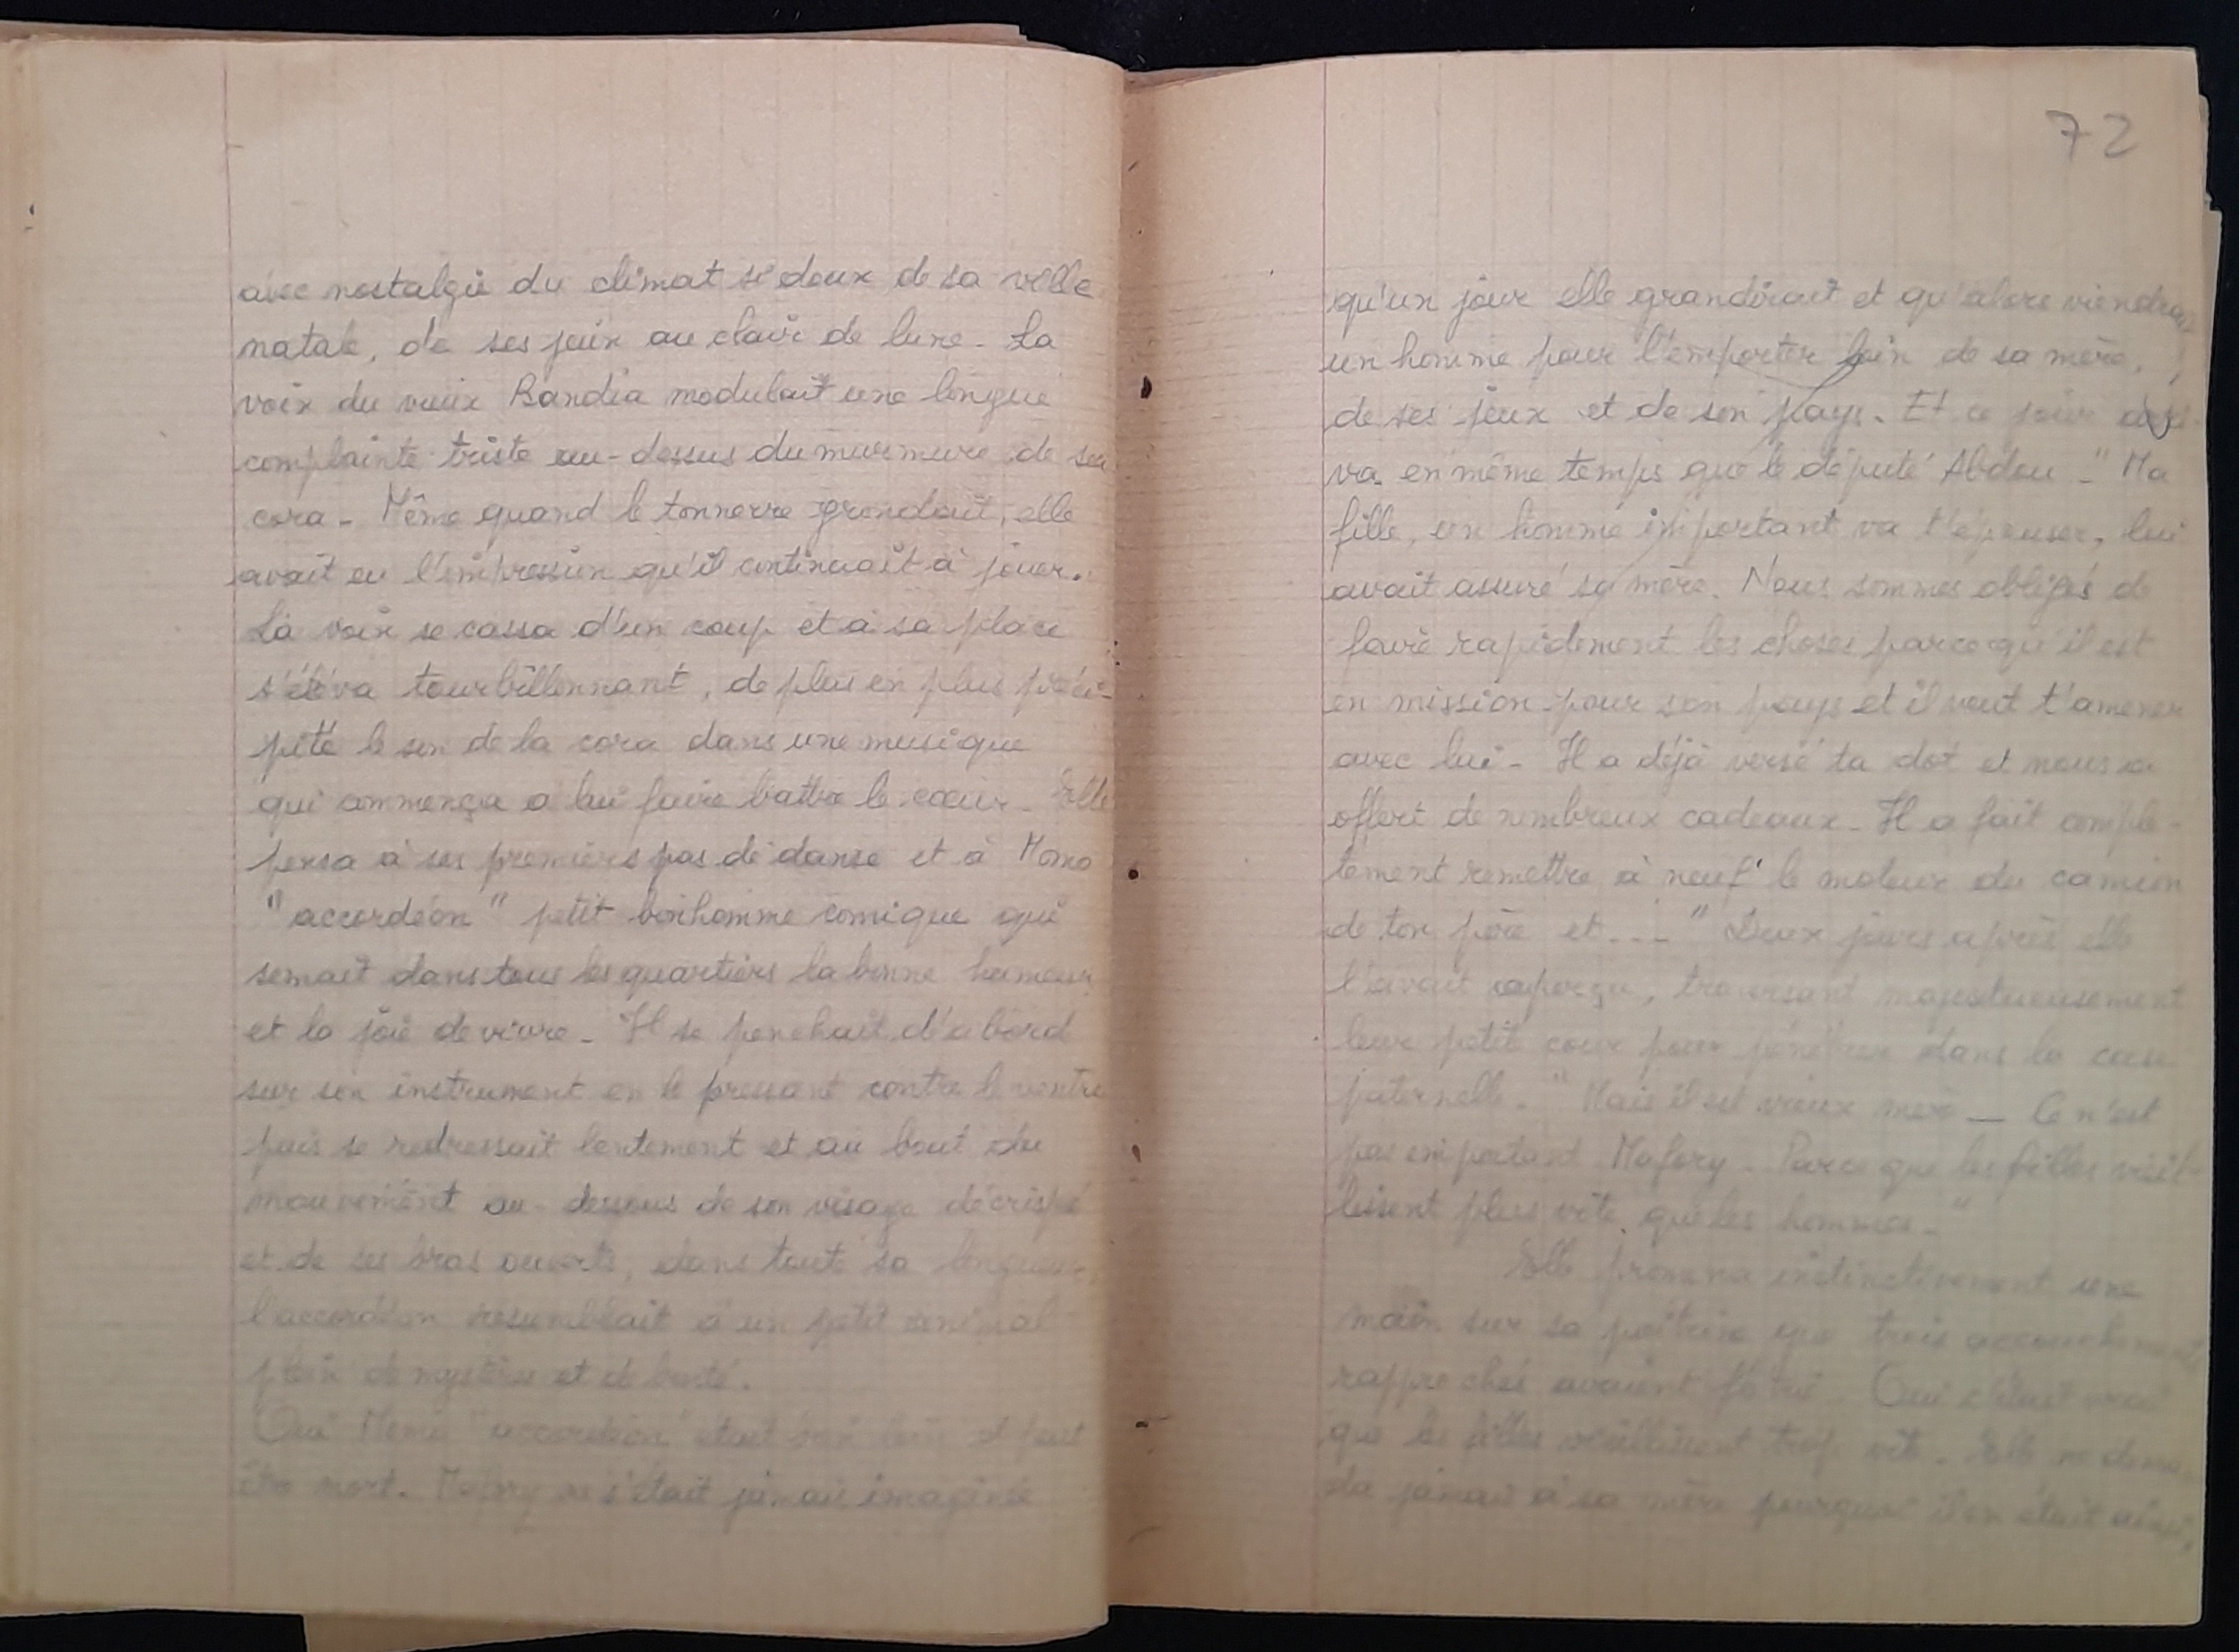 avec nostalgie du climat si doux de sa ville
natale, de ses jeux au clair de lune. La
voix du vieux Bandia modulait une longue
complainte triste au-dessus du murmure de sa
cora. Même quand le tonnerre grondait, elle
avait eu l'impression qu'il continuait à jouer.
La voix se cassa d'un coup et à sa place
s'éleva tourbillonnant, de plus en plus préci-
pité le son de la cora dans une musique
qui commença à lui faire battre le cœur. Elle
pensa à ses premiers pas de danse et à Momo
"accordéon" petit bonhomme comique qui
semait dans tous les quartiers la bonne humeur
et la joie de vivre. Il se penchait d'abord
sur son instrument en le pressant contre le ventre
puis se redressait lentement et au bout du
mouvement au-dessous de son visage décrispé
et de ses bras ouverts, dans toute sa longueur
l'accordéon ressemblait à un petit animal
plein de mystère et de bonté.
Oui Momo "accordéon" était bien loin et peut
être mort. Mafory ne s'était jamais imaginée
72
qu'un jour elle grandirait et qu'alors viendrait
un homme pour l'emporter loin de sa mère,
de ses jeux et de son pays. Et ce jour arri-
va en même temps que le député Abdou. "Ma
fille, un homme important va t'épouser, lui
avait assuré sa mère. Nous sommes obligés de
faire rapidement les choses parce qu'il est
en mission pour son pays et il veut t'amener
avec lui. Il a déjà versé ta dot et nous a
offert de nombreux cadeaux. Il a fait complè-
tement remettre à neuf le moteur du camion
de ton père et..." Deux jours après elle
l'avait aperçu, traversant majestueusement
leur petite cour pour pénétrer dans la case
paternelle. "Mais il est vieux mère — Ce n'est
pas important Mafory. Parce que les filles vieil-
lissent plus vite que les hommes."
Elle promena instinctivement une
main sur sa poitrine que trois accouchements
rapprochés avaient flétrie. Oui c'était vrai
que les filles vieillissent trop vite. Elle ne deman-
da jamais à sa mère pourquoi il en était ainsi,